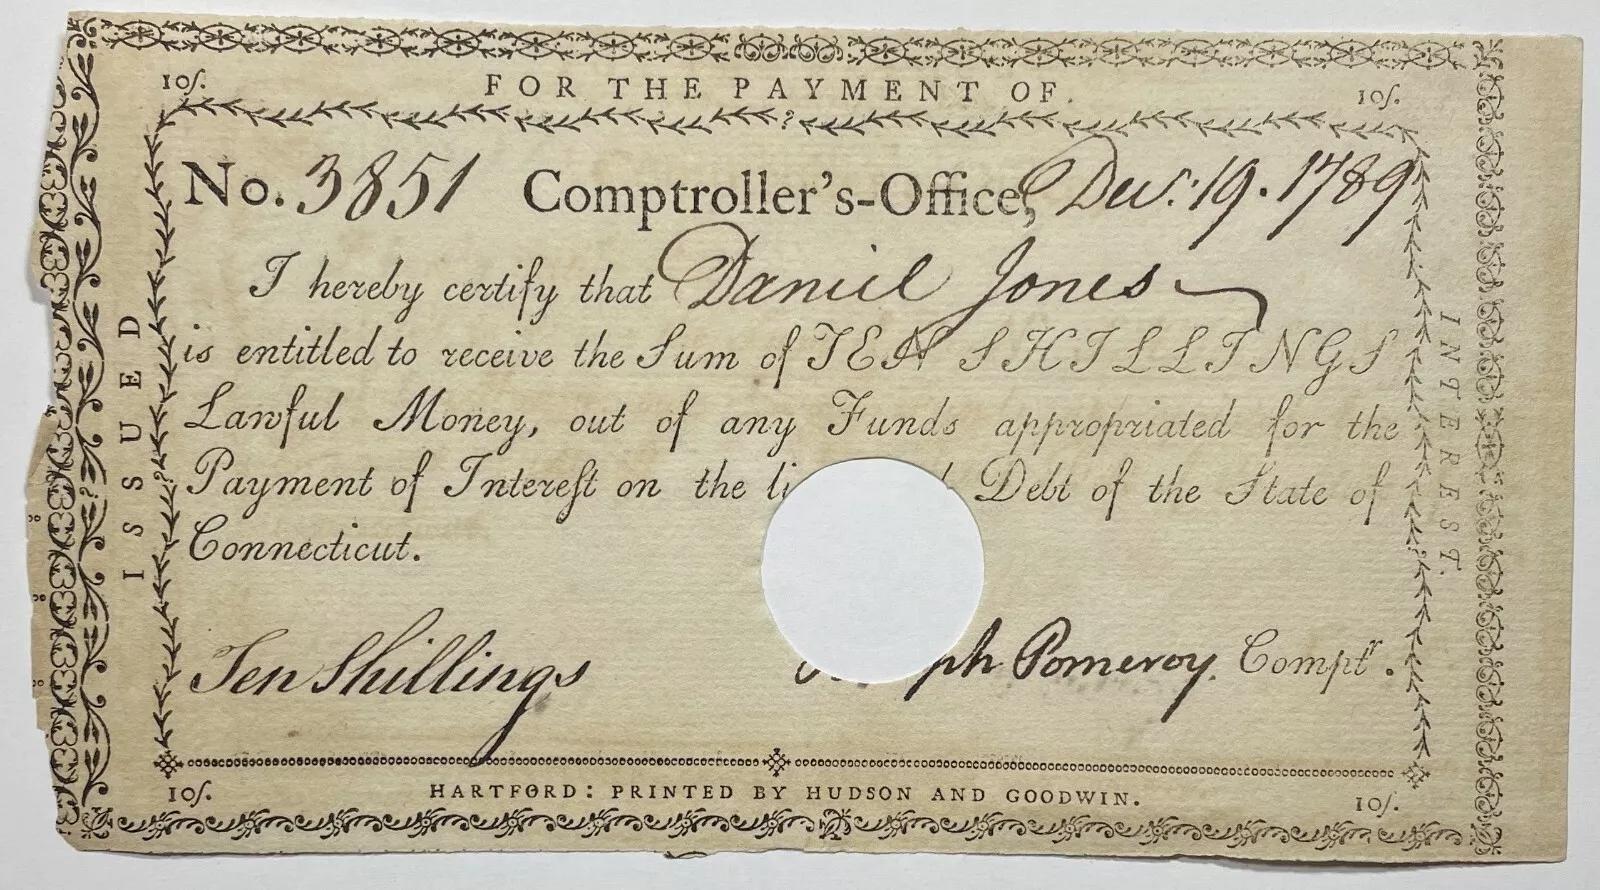 10ſ. FOR THE PAYMENT OF 10ſ.
No. 3851 Comptroller's-Office, Dec. 19. 1789
I hereby certify that Daniel Jones
is entitled to receive the Sum of TEN SHILLINGS
Lawful Money, out of any Funds appropriated for the
Payment of Intereſt on the li Debt of the State of
Connecticut.
Ten Shillings ph Pomeroy. Comptr.
10ſ. HARTFORD: PRINTED BY HUDSON AND GOODWIN. 10ſ.
ISSUED
INTEREST.